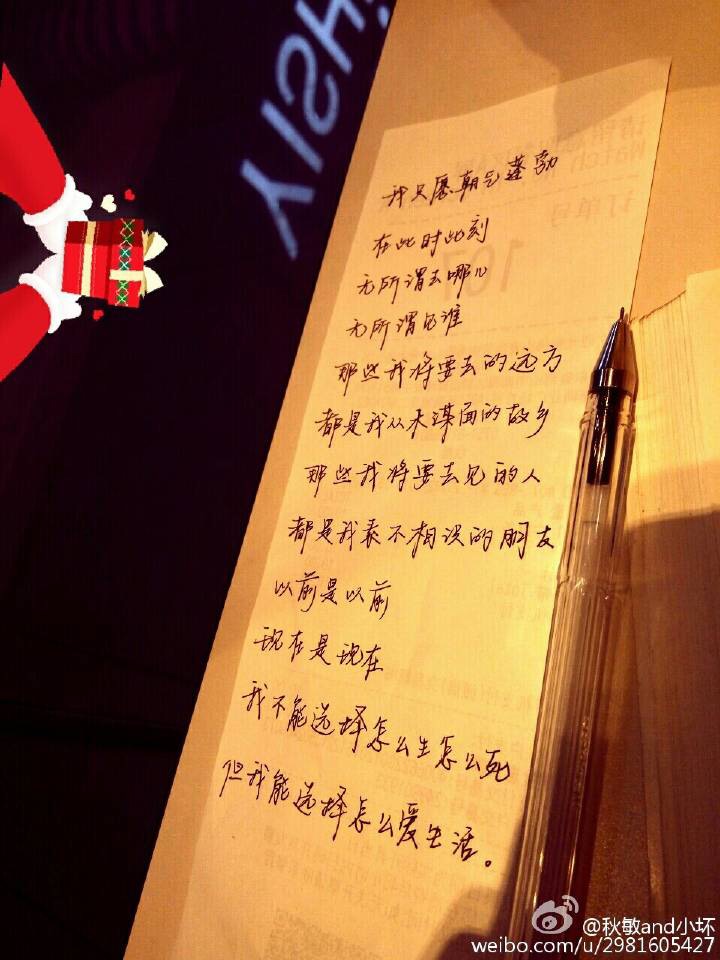 我只愿朝气蓬勃
在此时此刻
无所谓去哪儿
无所谓见谁
那些我将要去的远方
都是我从未谋面的故乡
那些我将要去见的人
都是我素不相识的朋友
以前是以前
现在是现在
我不能选择怎么生怎么死
但我能选择怎么爱生活。
订单号
107
@秋敏and小坏
weibo.com/u/2981605427